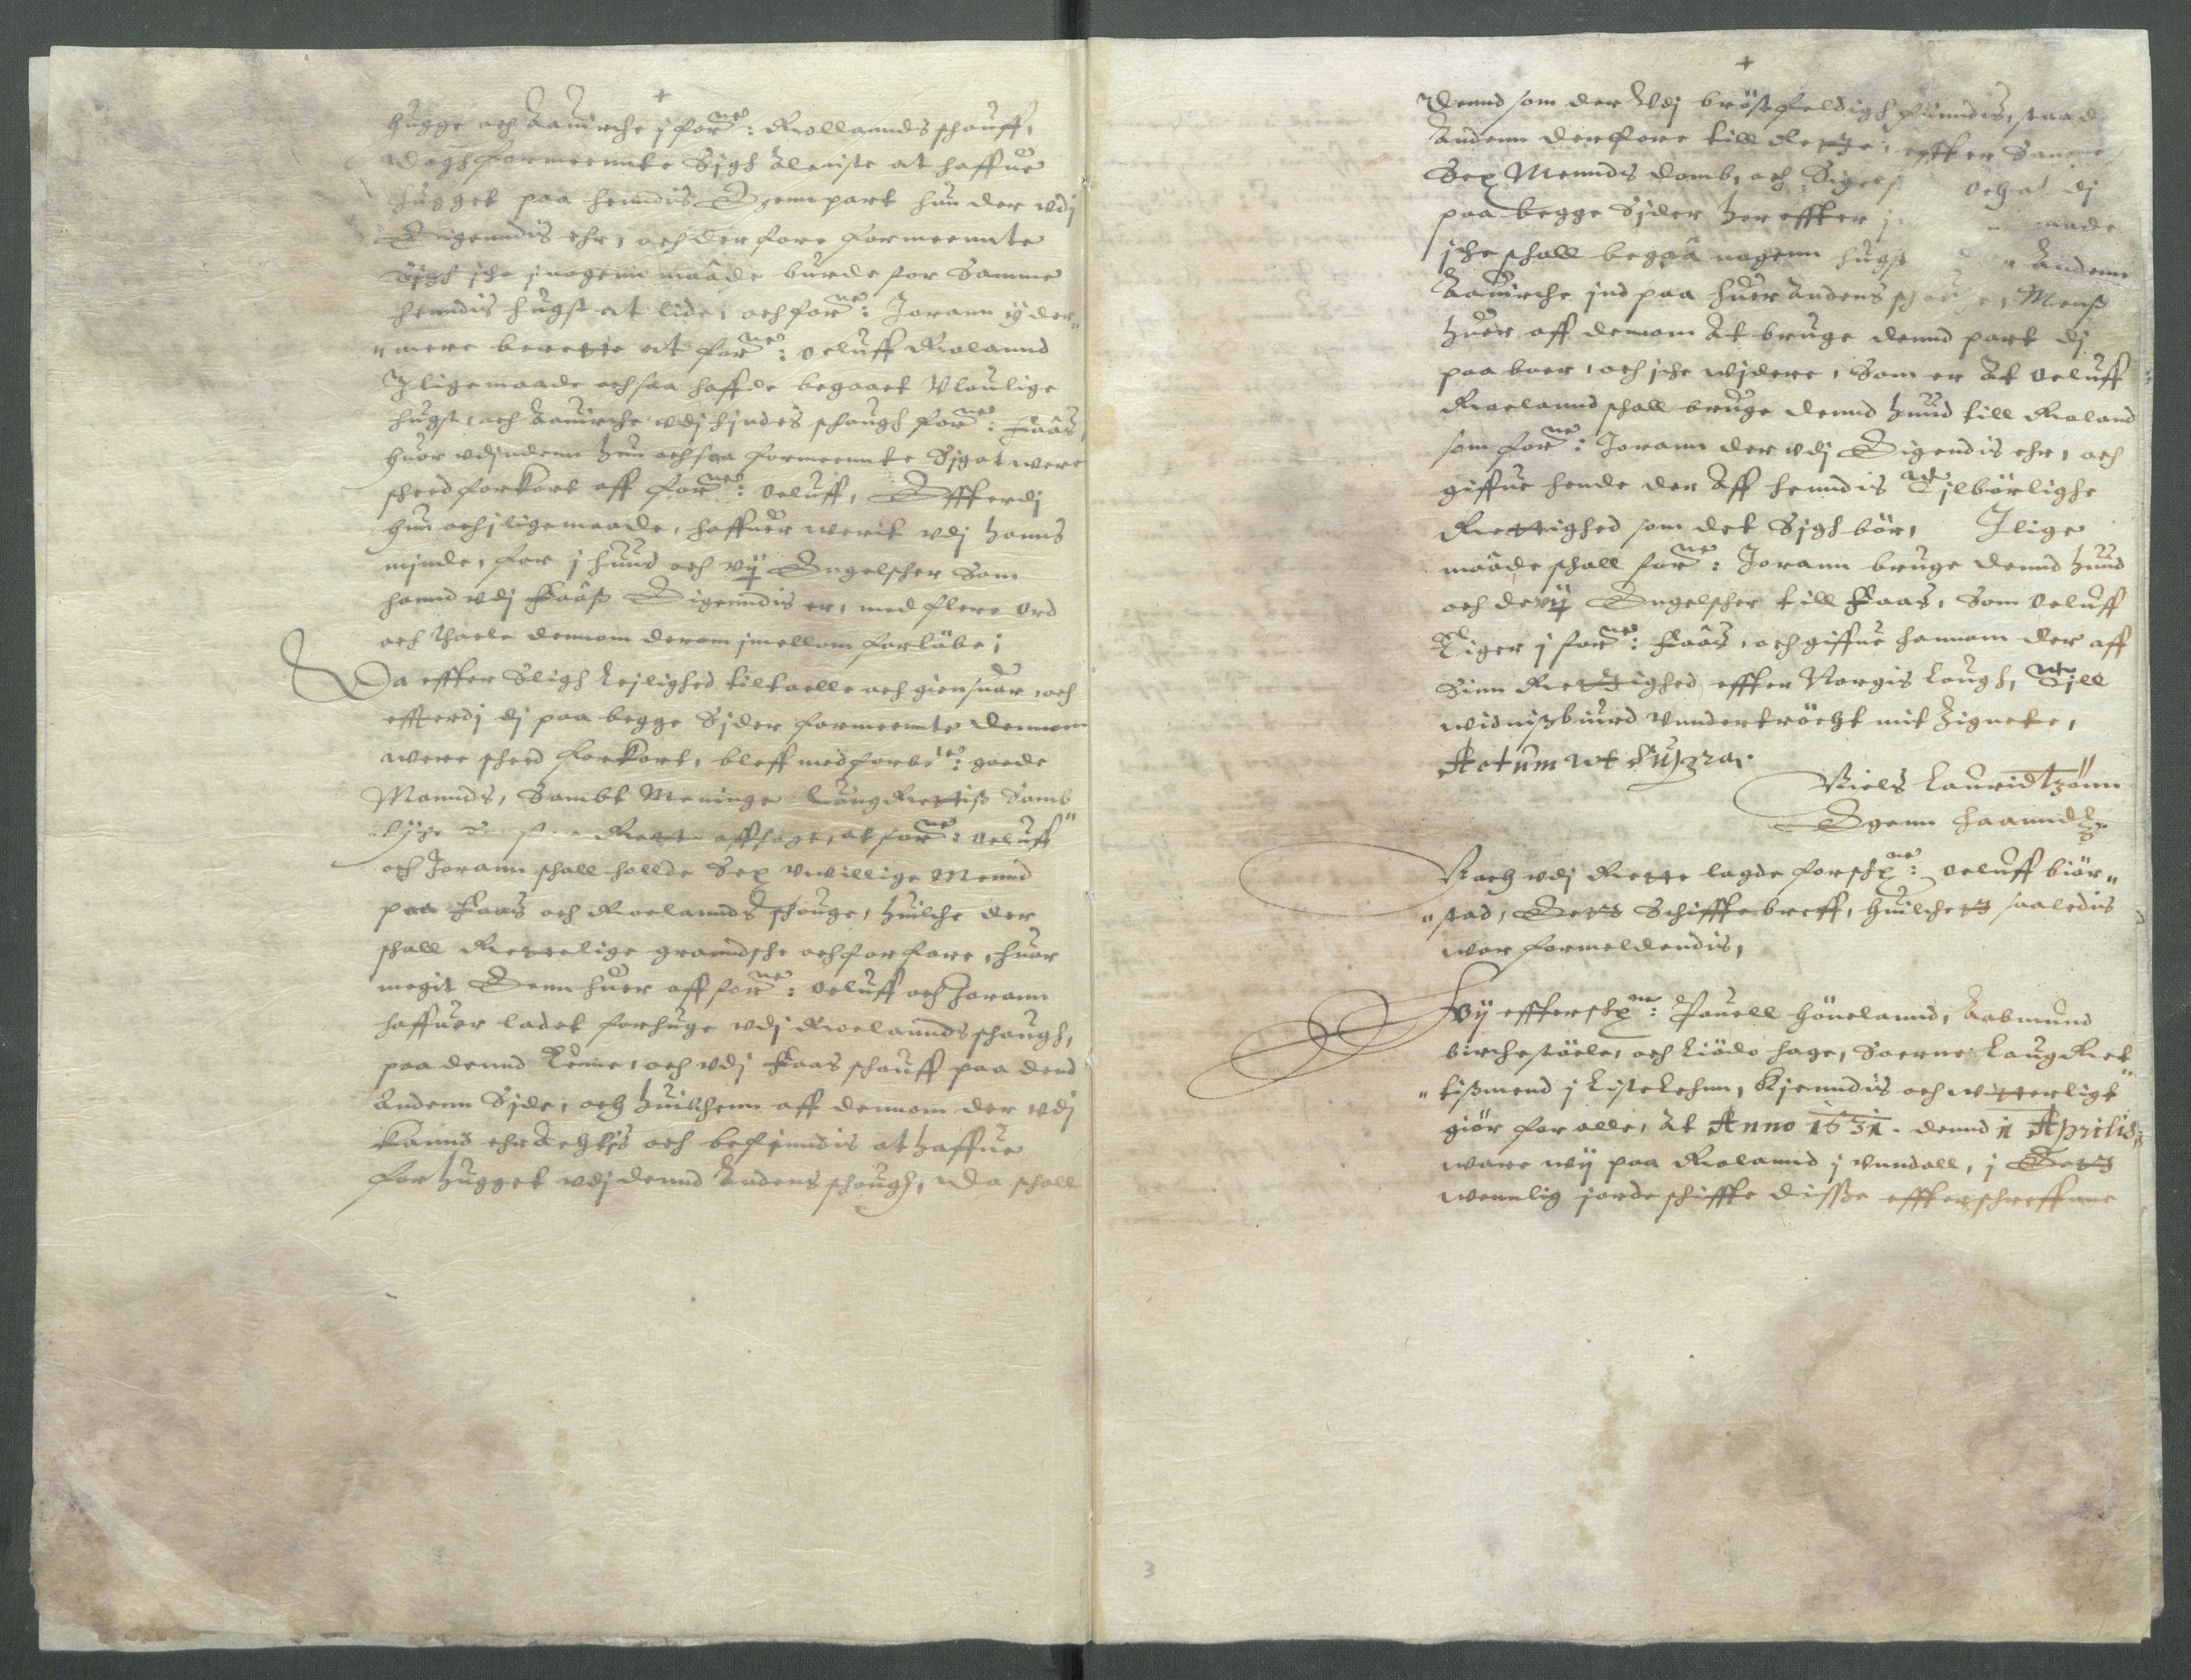 hugge och Aauirche j forne: Rollannds schouff,
dogh formeennte Sigh Aleniste at haffue
hugget paa henndis Egenn part hun der vdj
Eigenndis ehr, och der fore formeennte
Sigh iche j nogenn maade burde for Samme
henndis hugst at lide, och forne: Jorann yder„
„mere berette at forne: Oeluff Rolannd
Jligemaade ochsaa haffde begaaet Vlaulige
hugst, och Aauirche vdj hindes schough forne: Faas,
huor vdjndenn hun ochsaa formeennte Sig at were
scheed forKort aff forne: Oeluff, Effterdj
hun och jligemaade, haffuer werit vdj hanns
minde, for j huud och vij Engelscher Som
hannd vdj Faass Eigenndis er, med flere Ord
och thaele dennom derom jmellom forlöbe;
Da effter Sligh Leilighed tiltaelle och giensuar, och
effterdj dj paa begge Sider formeennte dennom
were scheed forKort, bleff med forbene: goede
Mannds, Sambt Meninge LaugRettis Samb„
Rette affsagt, at forne: Oeluff
och Jorann schall hollde Sex vuillige Mennd
paa Faas och Roelannds schouge, huilche der
schall Rettelige granndsche och forfare, huor
megit Eenn huer aff forne: Oeluff och Jorann
haffuer ladet forhuge vdj Roelannds schough,
paa dennd Eenne, och vdj Faas schouff paa dend
Andenn Side, och huilchenn aff dennom der vdj
Sannd ehr Achtis och befinndis at haffue
for hugget vdj dennd Andens schough, da schall
Dennd som der Vdj bröstfeldigh finndis, staad
Andenn derfore till Rette, effter Samme
Sex Menndis domb, och Sigels och at dj
paa begge Sider her effter j maade
iche schall begaa nogenn hugst Andenn
Aauirche ind paa huer Andens schouge, Menss
huer aff dennom At bruge dennd part dj
paa boer, och iche widere, Som er At Oeluff
Roelannd schall bruge dennd huud till Roland
som forne: Jorann der vdj Eigendis ehr, och
giffue hende der Aff henndis Tilbörlighe
Rettighed som det Sigh bör, Jlige
maade schall forne: Jorann bruge dennd huud
och de vij Engelscher till Faas, Som Oeluff
Eiger j forne: Faas, och giffue hannom der aff
Sinn Rettighed effter Norgis Laugh, Till
widnissbiurd vnndertröcht mit Zignete,
Actum ut Supra.
Niels Lauridtzönn
Egenn haanndt
Noch vdj Rette lagde forschne: Oeluff biör„
„stad, Eett Schiffte breff, huilchett saaledis
war formeldendis,
Wij effterschne: Pouell Höuelannd, Aabmund
birchestöele, och Liödo hage, Soerne LaugRet„
„tissmend j Liste Lehnn, Kienndis och witterligt
giör for alle, At Anno 1631. dennd 11 Aprilis
ware wij paa Rolannd j vnndall, j Eett
wennlig jorde schiffte disse effterschreffnne
3